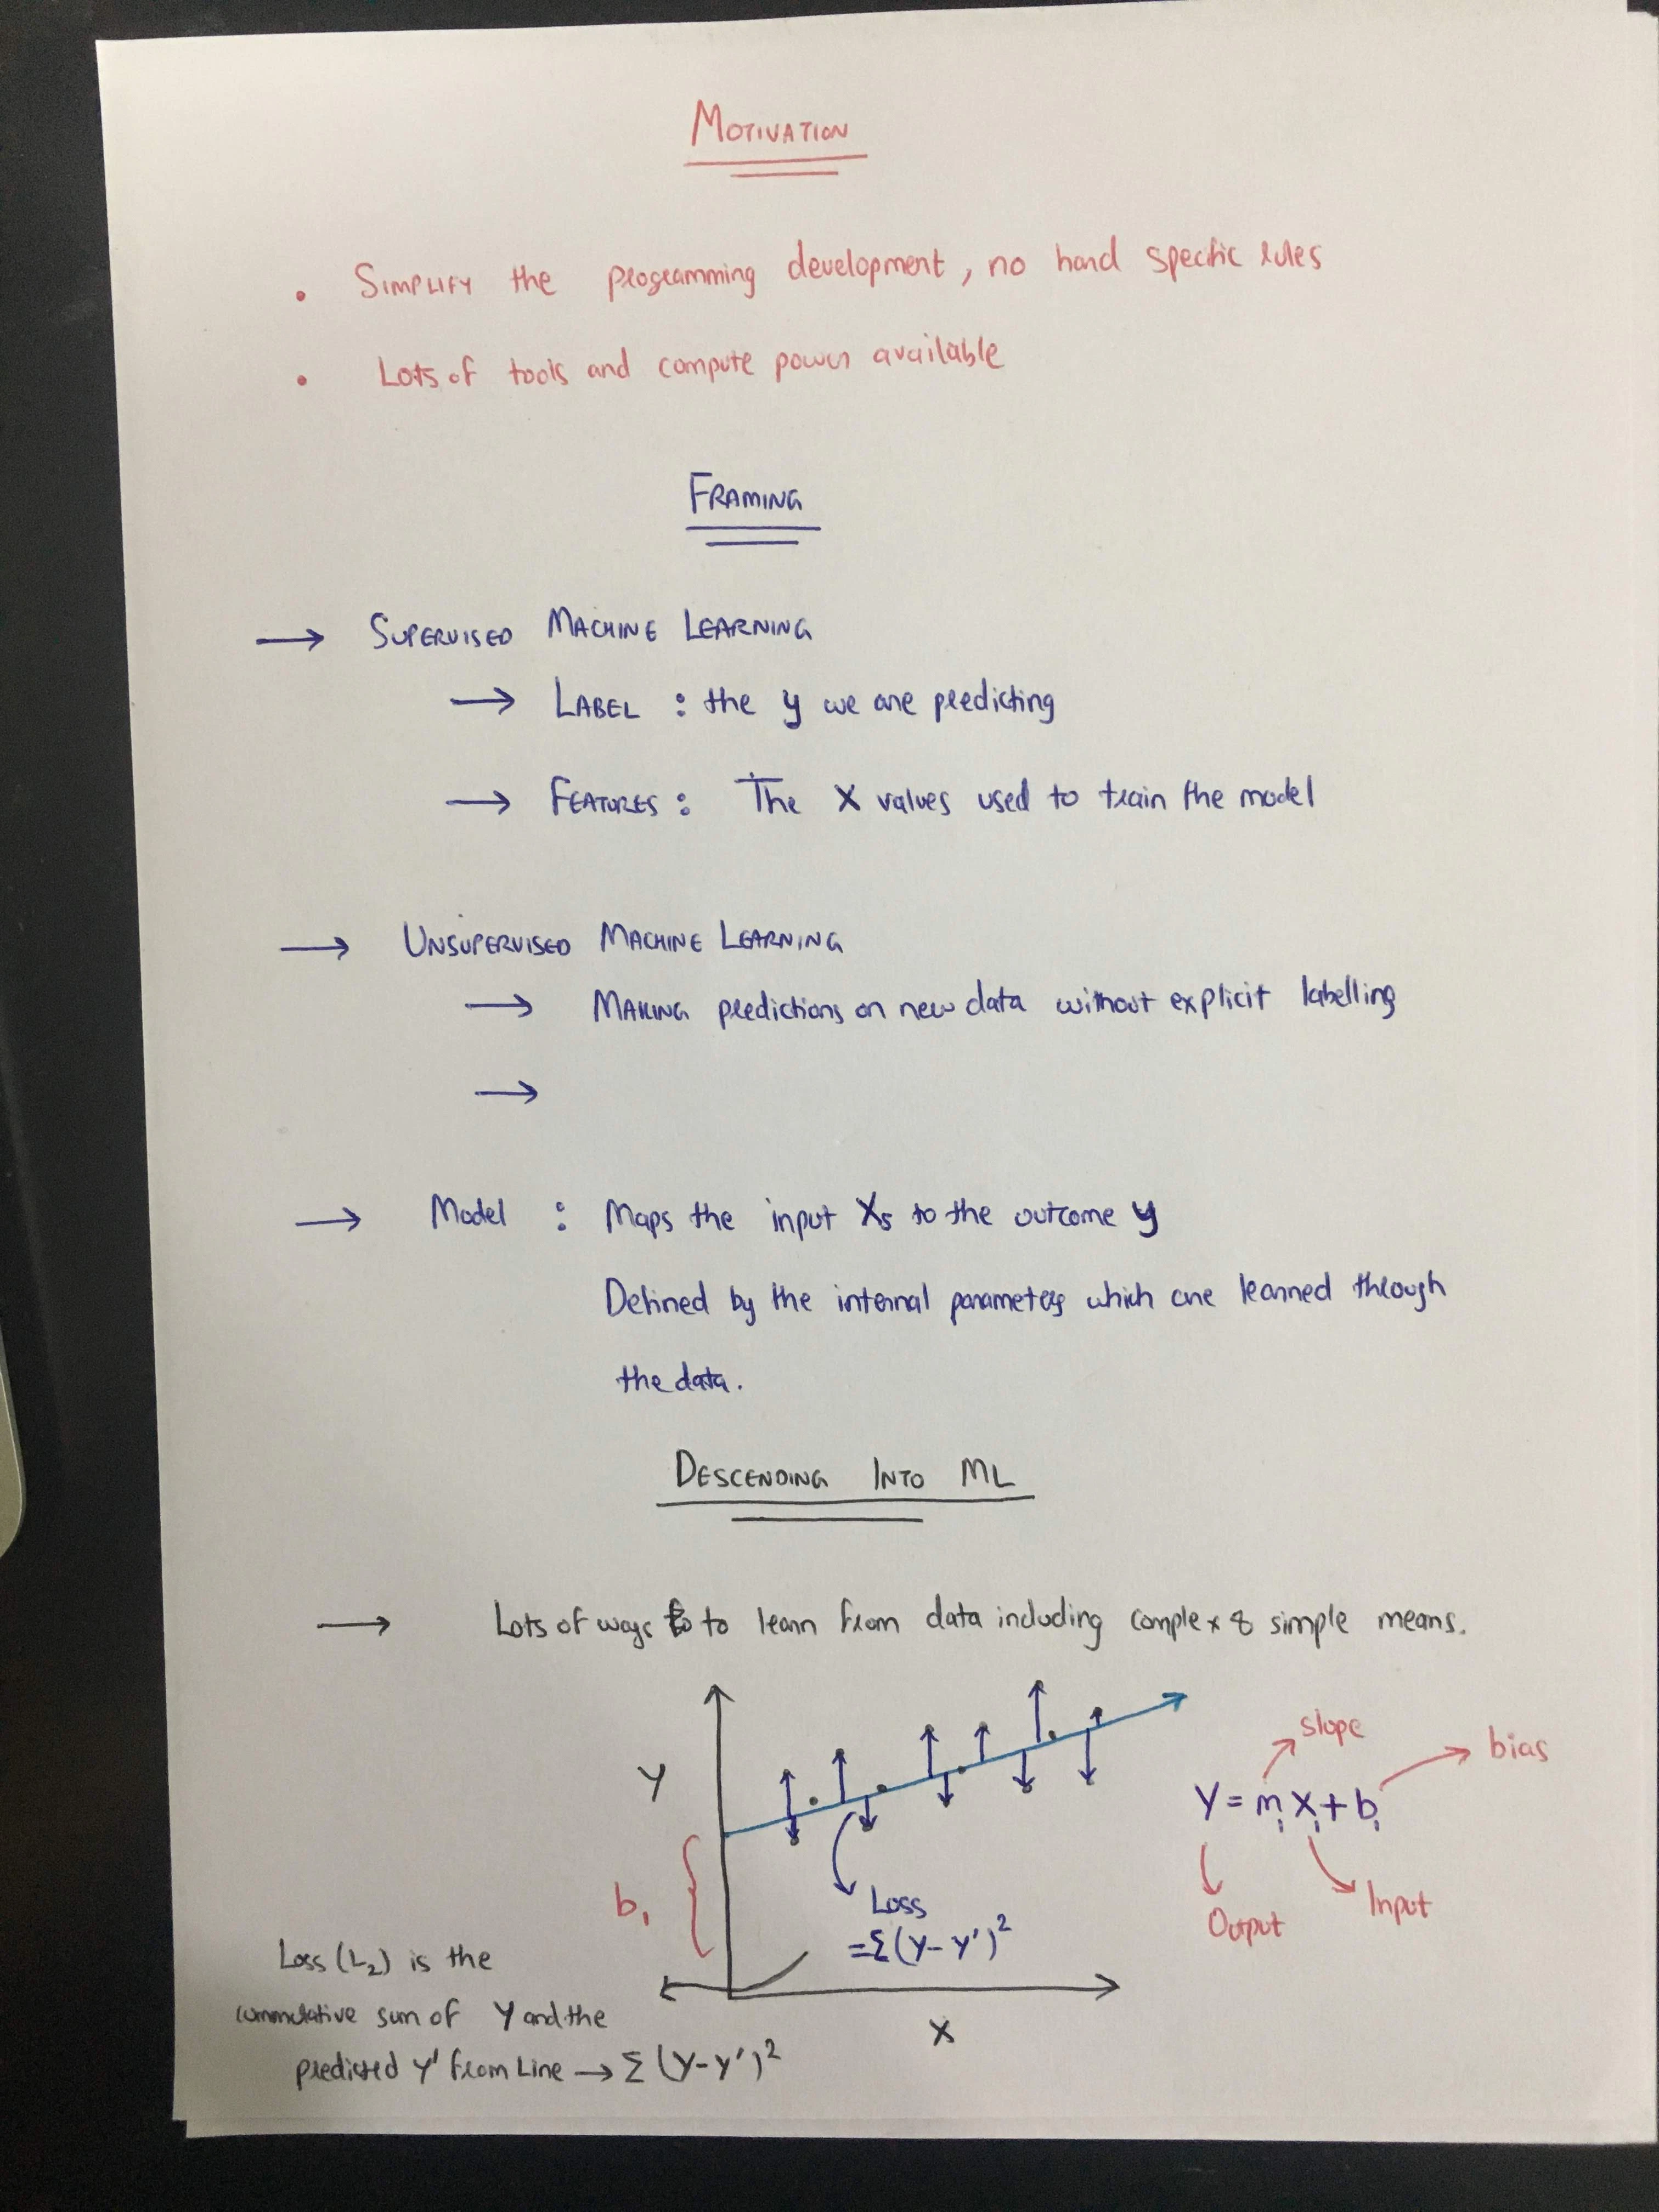 MOTIVATION
• SIMPLIFY the programming development, no hand specific rules
• Lots of tools and compute power available
FRAMING
→ SUPERVISED MACHINE LEARNING
→ LABEL : the y we are predicting
→ FEATURES : The X values used to train the model
→ UNSUPERVISED MACHINE LEARNING
→ MAKING predictions on new data without explicit labelling
→
→ Model : Maps the input Xs to the outcome y
Defined by the internal parameters which are learned through
the data.
DESCENDING INTO ML
→ Lots of ways to to learn from data including complex & simple means.
slope
bias
Y
Y = m₁X₁ + b₁
b₁
Loss
= Σ(Y - Y')²
Output
Input
X
Loss (L₂) is the
cummulative sum of Y and the
predicted Y' from Line → Σ (Y - Y')²